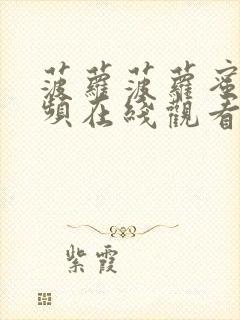 菠蘿菠蘿蜜
頻在綫觀看
紫霞